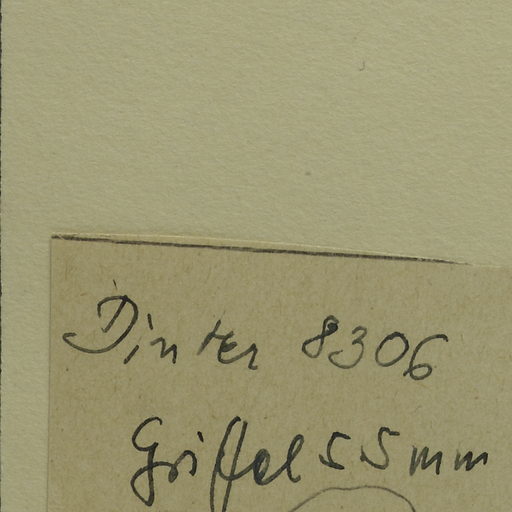 Dinter 8306
Griffel 55mm